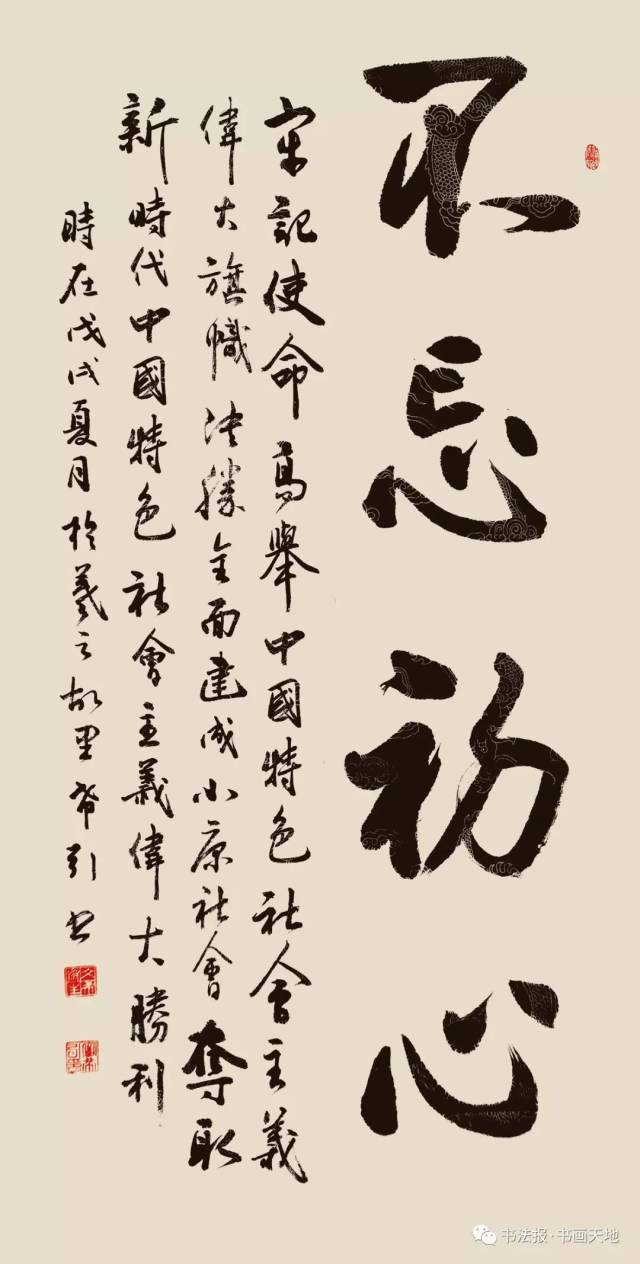 不忘初心
牢記使命高舉中國特色社會主義
偉大旗幟決勝全面建成小康社會奪取
新時代中國特色社會主義偉大勝利
時在戊戌夏月於羲之故里希引书
书法报·书画天地